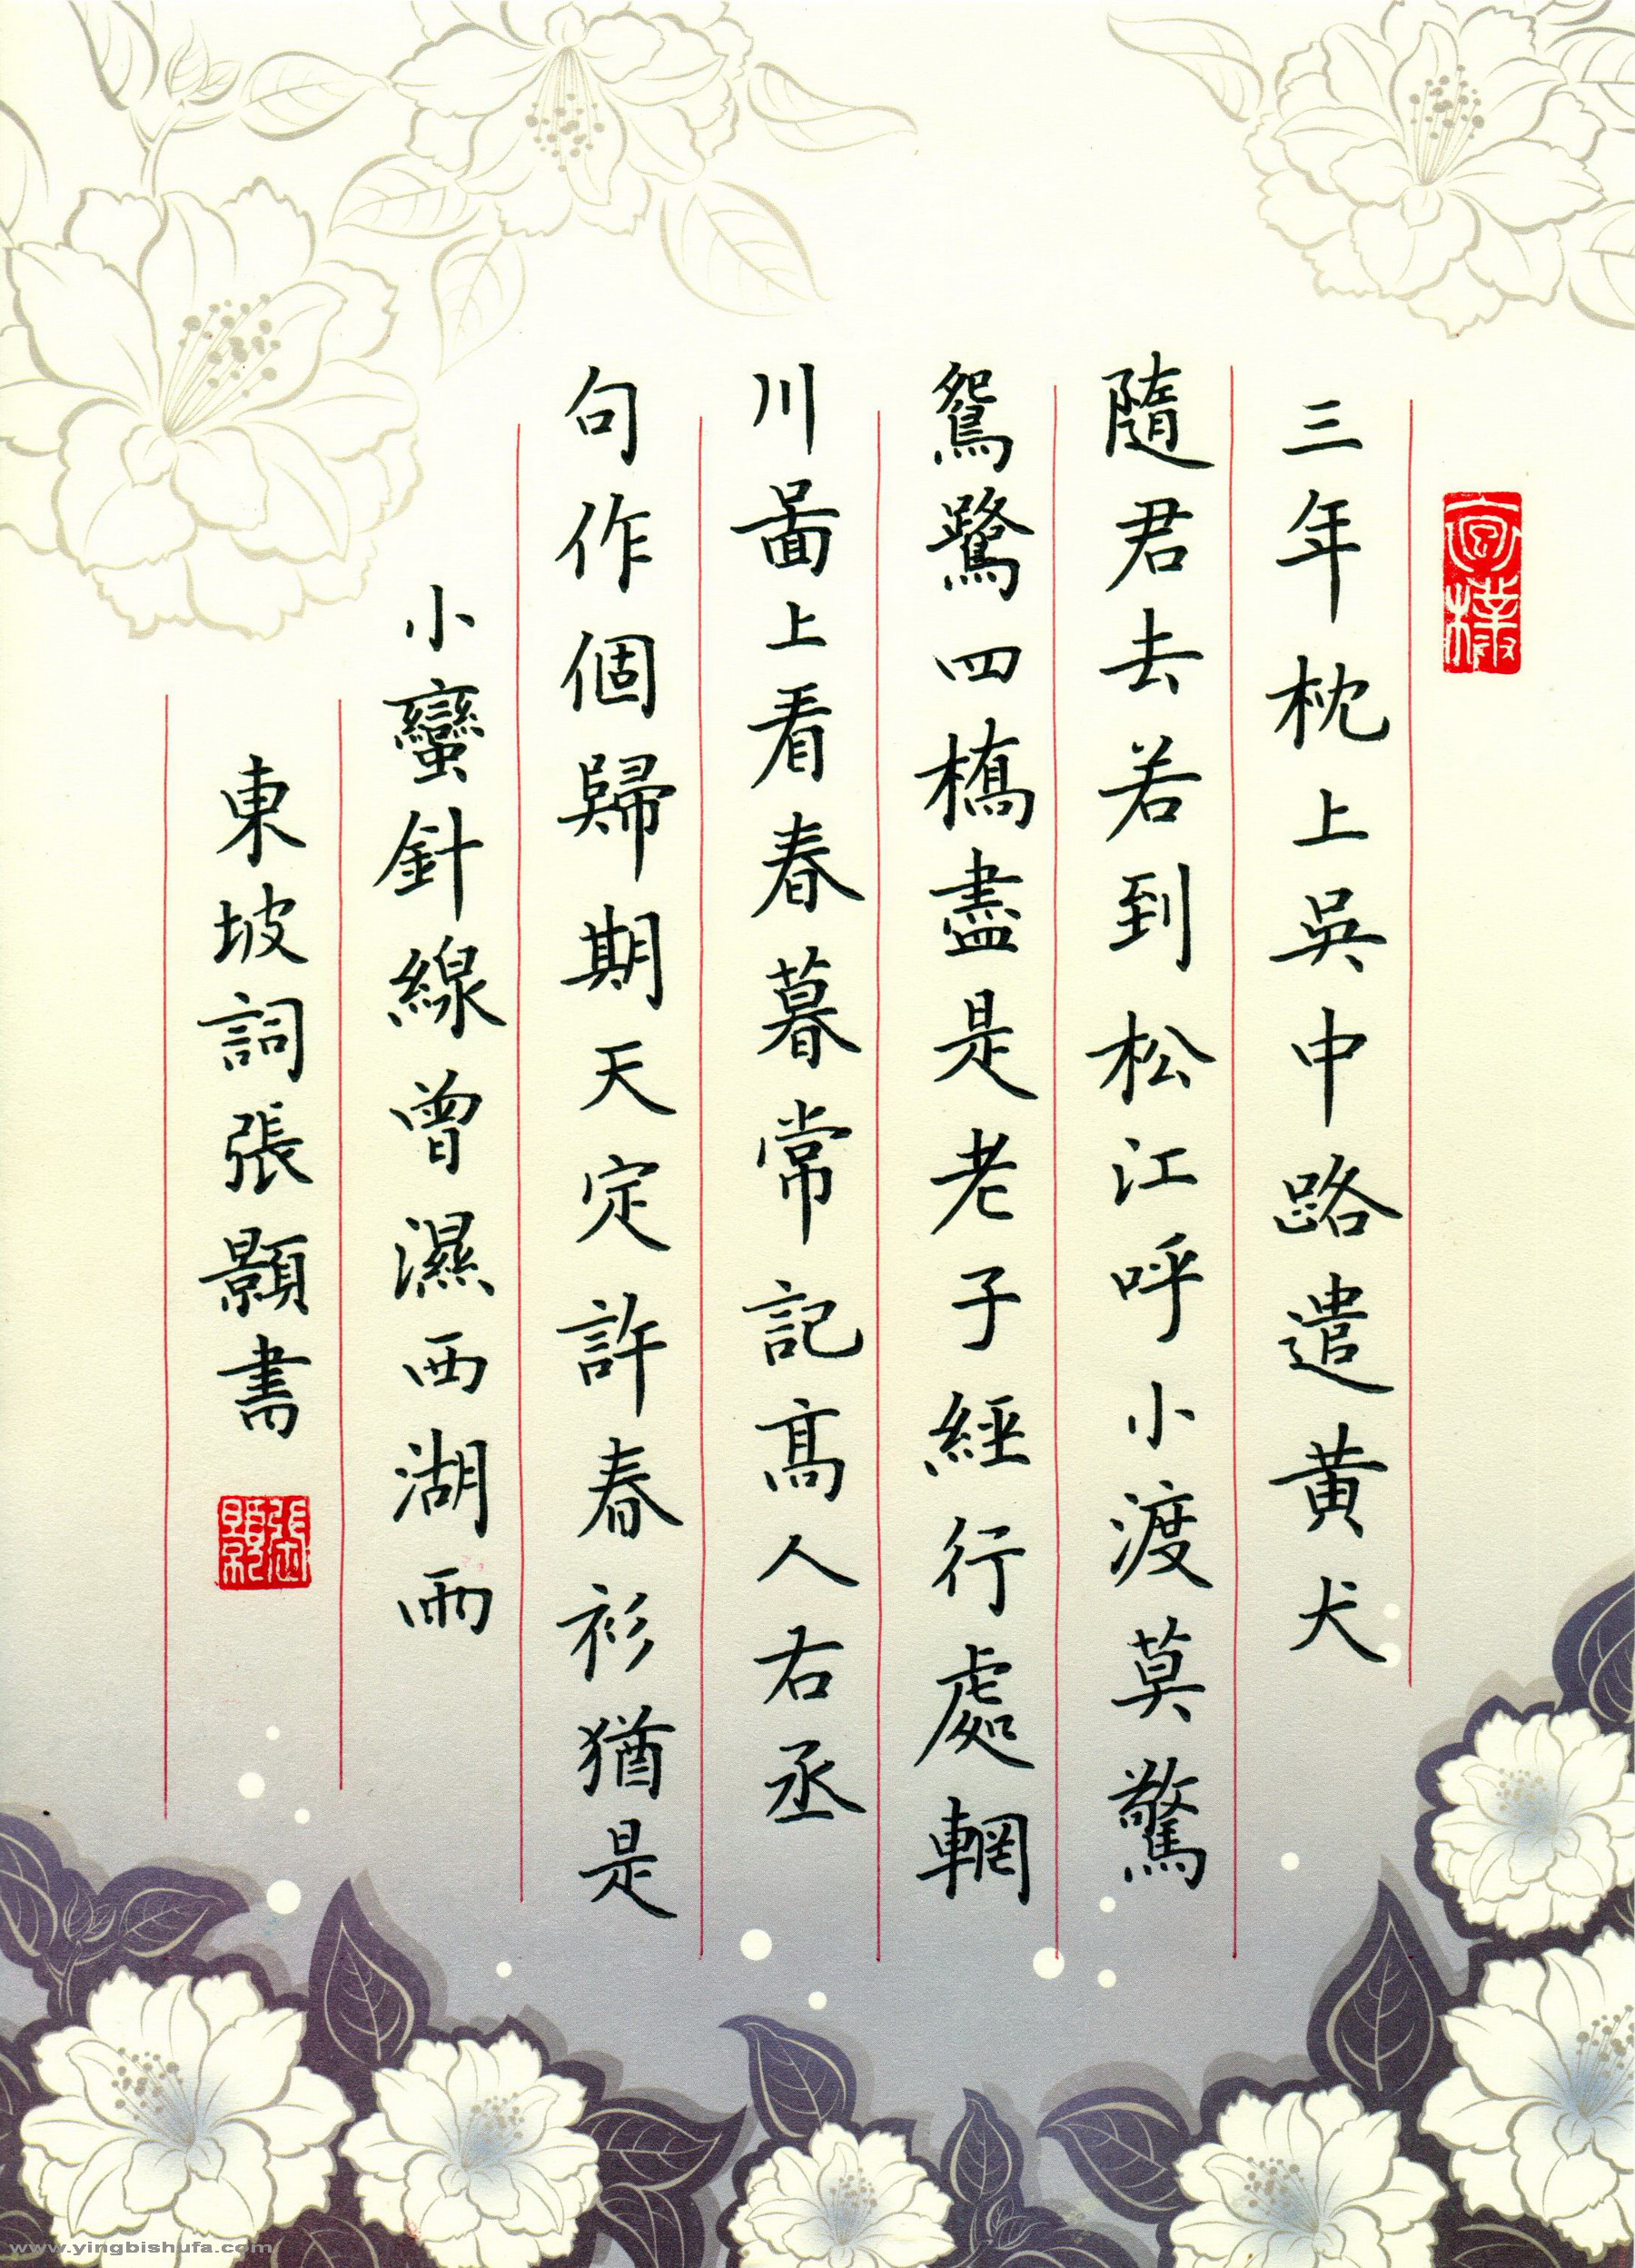 三年枕上吳中路遣黄犬
隨君去若到松江呼小渡莫驚
鴛鷺四橋盡是老子經行處輞
川啚上看春暮常記髙人右丞
句作個歸期天定許春衫猶是
小蠻針線曾濕西湖雨
東坡詞張顥書
www.yingbishufa.com